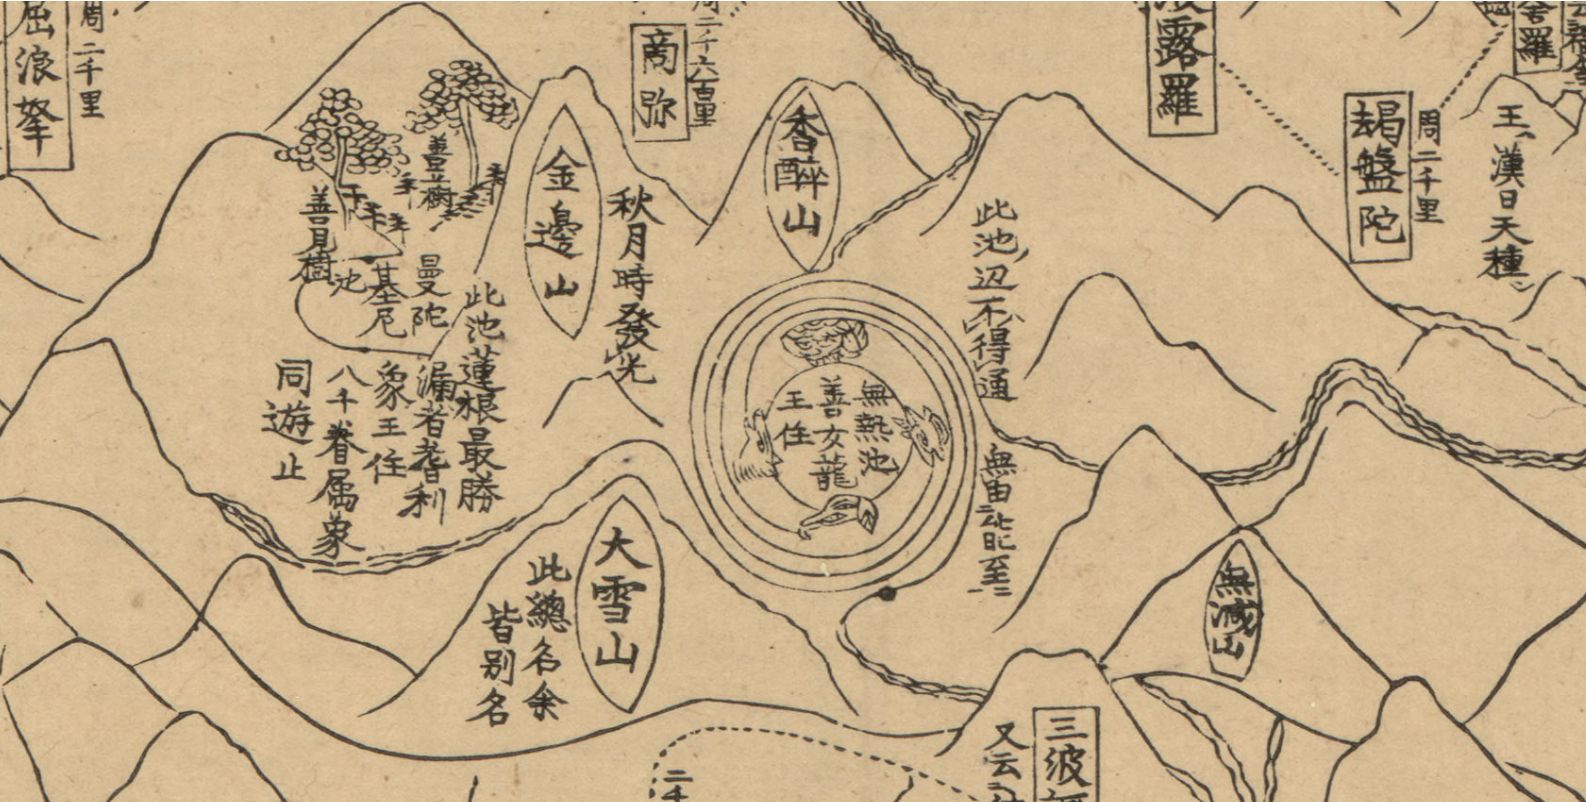 露羅
羯盤陀
周二千里
王漢日天種
商弥
周二千六百里
屈浪拏
周二千里
香醉山
此池辺不得通
無由能至
無熱池
善女龍
王住
金邊山
秋月時發光
善立樹
善見樹
曼陀
基尼
池
此池蓮根最勝
漏者耆利
象王住
八千眷属象
同遊止
大雪山
此總名余
皆別名
無減山
三波
又云
二千